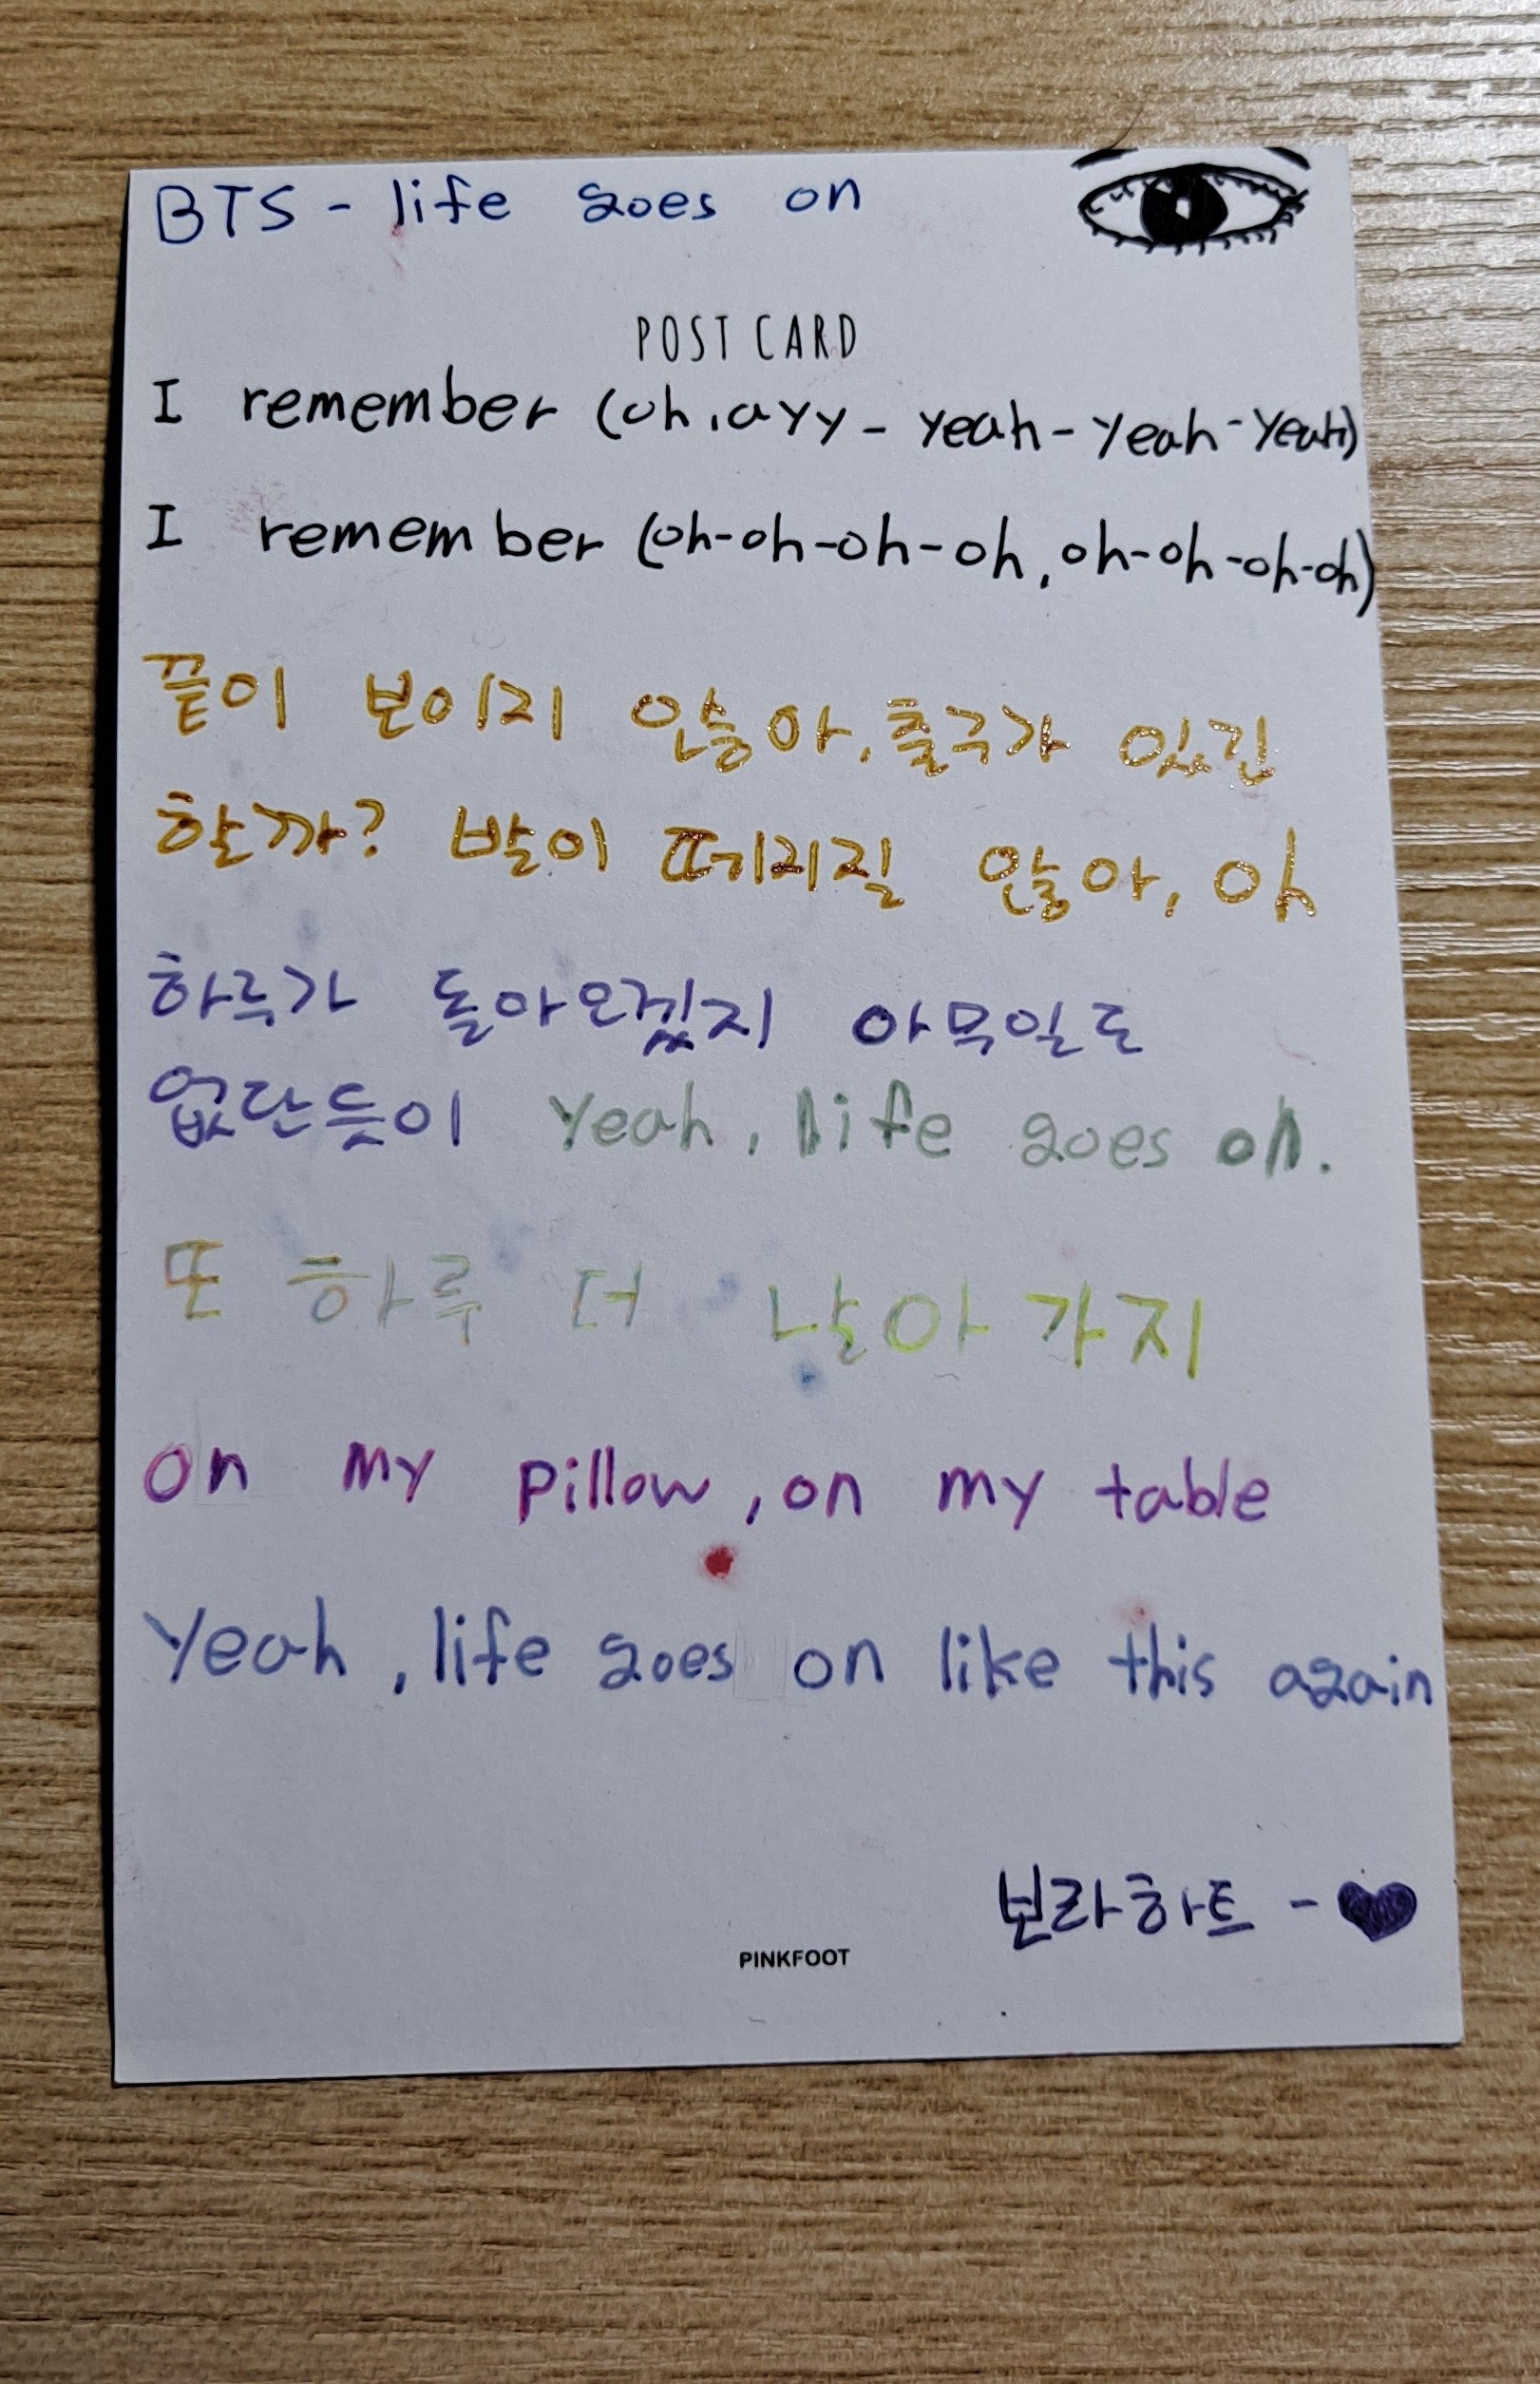 BTS - life goes on
POST CARD
I remember (oh, ayy - yeah - yeah - yeah)
I remember (oh-oh-oh-oh, oh-oh-oh-oh)
끝이 보이지 않아, 출구가 있긴
할까? 발이 떼지질 않아, oh
하루가 돌아오겠지 아무일도
없단듯이 Yeah, life goes on.
또 하루 더 날아가지
on my pillow, on my table
Yeah, life goes on like this again
보라하트 - ♥
PINKFOOT